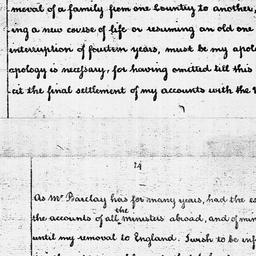 moval of a family from one Country to another,
ing a new course of life or resuming an old one
interruption of fourteen years, must be my apol
apology is necessary, for having omitted till this
cit the final settlement of my accounts with the
24
As Mr Barclay has for many years, had the es
the accounts of all the ministers abroad, and of min
until my removal to England. I wish to be inf